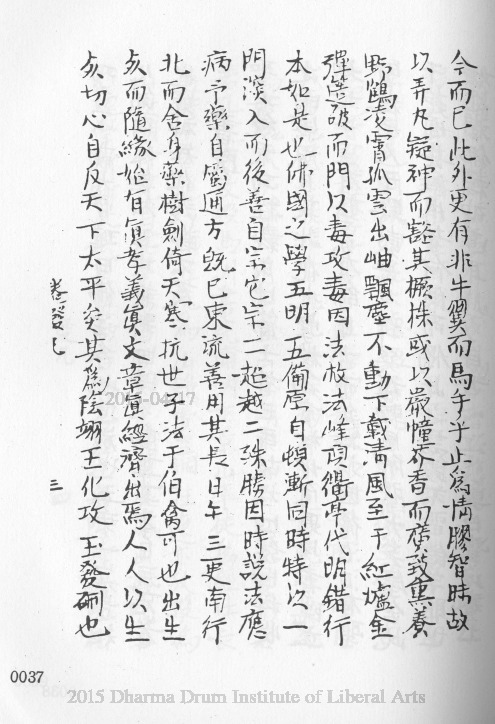 今而已此外更有非牛翼而馬手乎止為情膠智昧故
以弄丸凝神而豁其橛株或以嚴幢芥香而廣莪熏養
野鶴凌霄孤雲出岫飄塵不動下載清風至于紅爐金
彈篋破而門以毒攻毒因法救法峰頂衢亭代明錯行
本如是也佛國之學五明五備原自頓漸同時特以一
門深入而後善自宗它宗二超越二殊勝因時說法應
病予藥自爾通方既已東流善用其長日午三更南行
北而舍身藥樹劍倚天寒抗世子法于伯禽可也出生
死而隨緣始有真孝義真文章真經濟出焉人人以生
死切心自反天下太平矣其為陰翊王化攻玉發硎也
卷 三
2015-04-17
0037
2015 Dharma Drum Institute of Liberal Arts